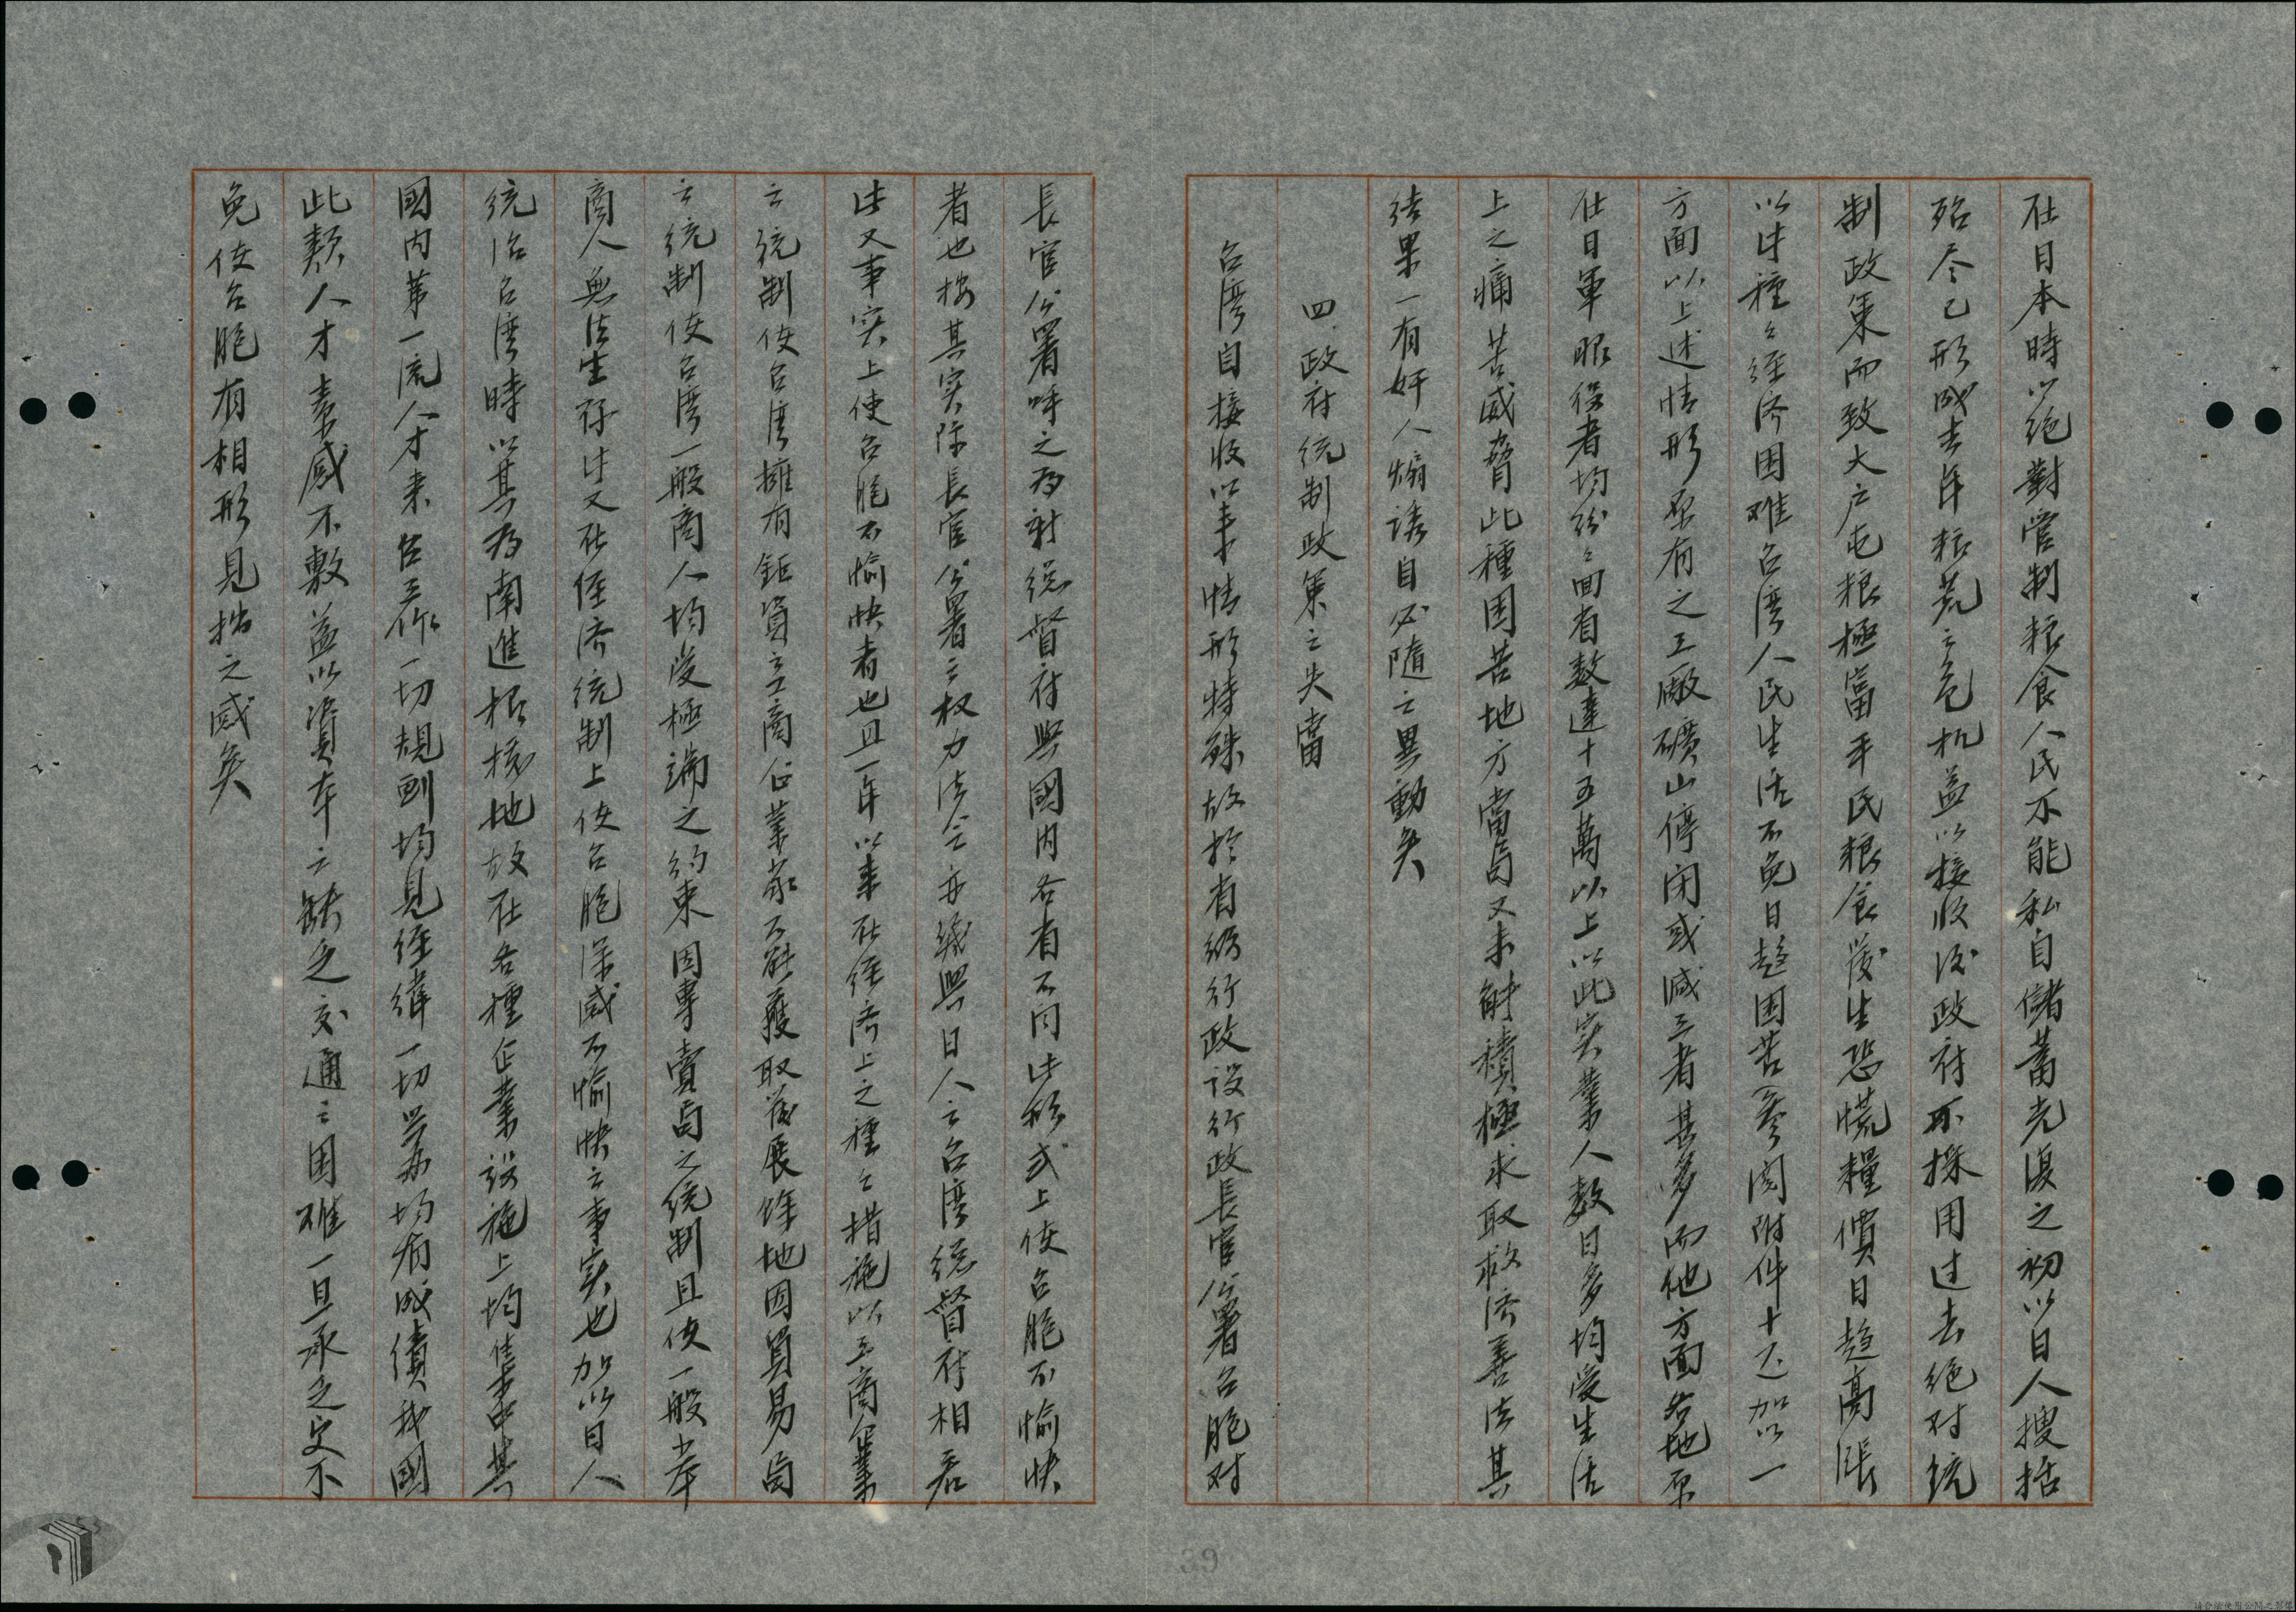 在日本時以絕對管制粮食人民不能私自儲蓄光復之初以日人搜括
殆尽已形成去年粮荒之危机益以接收後政府不採用过去絕对統
制政策而致大户屯粮極富平民粮食發生恐慌糧價日趨高漲
以此種々經濟困难台湾人民生活不免日趨困苦(參閱附件十五)加以一
方面以上述情形原有之工廠礦山停闭或減工者甚多而他方面各地原
在日軍服役者均紛々回有数達十五萬以上以此失業人数日多均受生活
上之痛苦威脅此種困苦地方當局又未能積極求取救濟善法其
結果一有奸人煽誘自必隨之異動矣
四.政府統制政策之失當
台湾自接收以来情形特殊故於省級行政設行政長官公署台胞对
長官公署呼之为新總督府與國内各省不同此形式上使台胞不愉快
者也按其实际長官公署之权力法令亦幾與日人之台湾總督府相若
此又事实上使台胞不愉快者也且一年以来在經濟上之種々措施以工商企業
之統制使台湾擁有鉅資之工商企業家不能獲取發展餘地因貿易局
之統制使台湾一般商人均受極端之約束因專賣局之統制且使一般小本
商人無法生存此又在經济統制上使台胞深感不愉快之事实也加以日人
統治台湾時以其为南進根據地故在各種企業設施上均集中其
國内第一流人才来台工作一切規劃均見經緯一切兴办均有成績我國
此類人才素感不敷益以資本之缺乏交通之困难一旦承乏实不
免使台胞有相形見拙之感矣
39